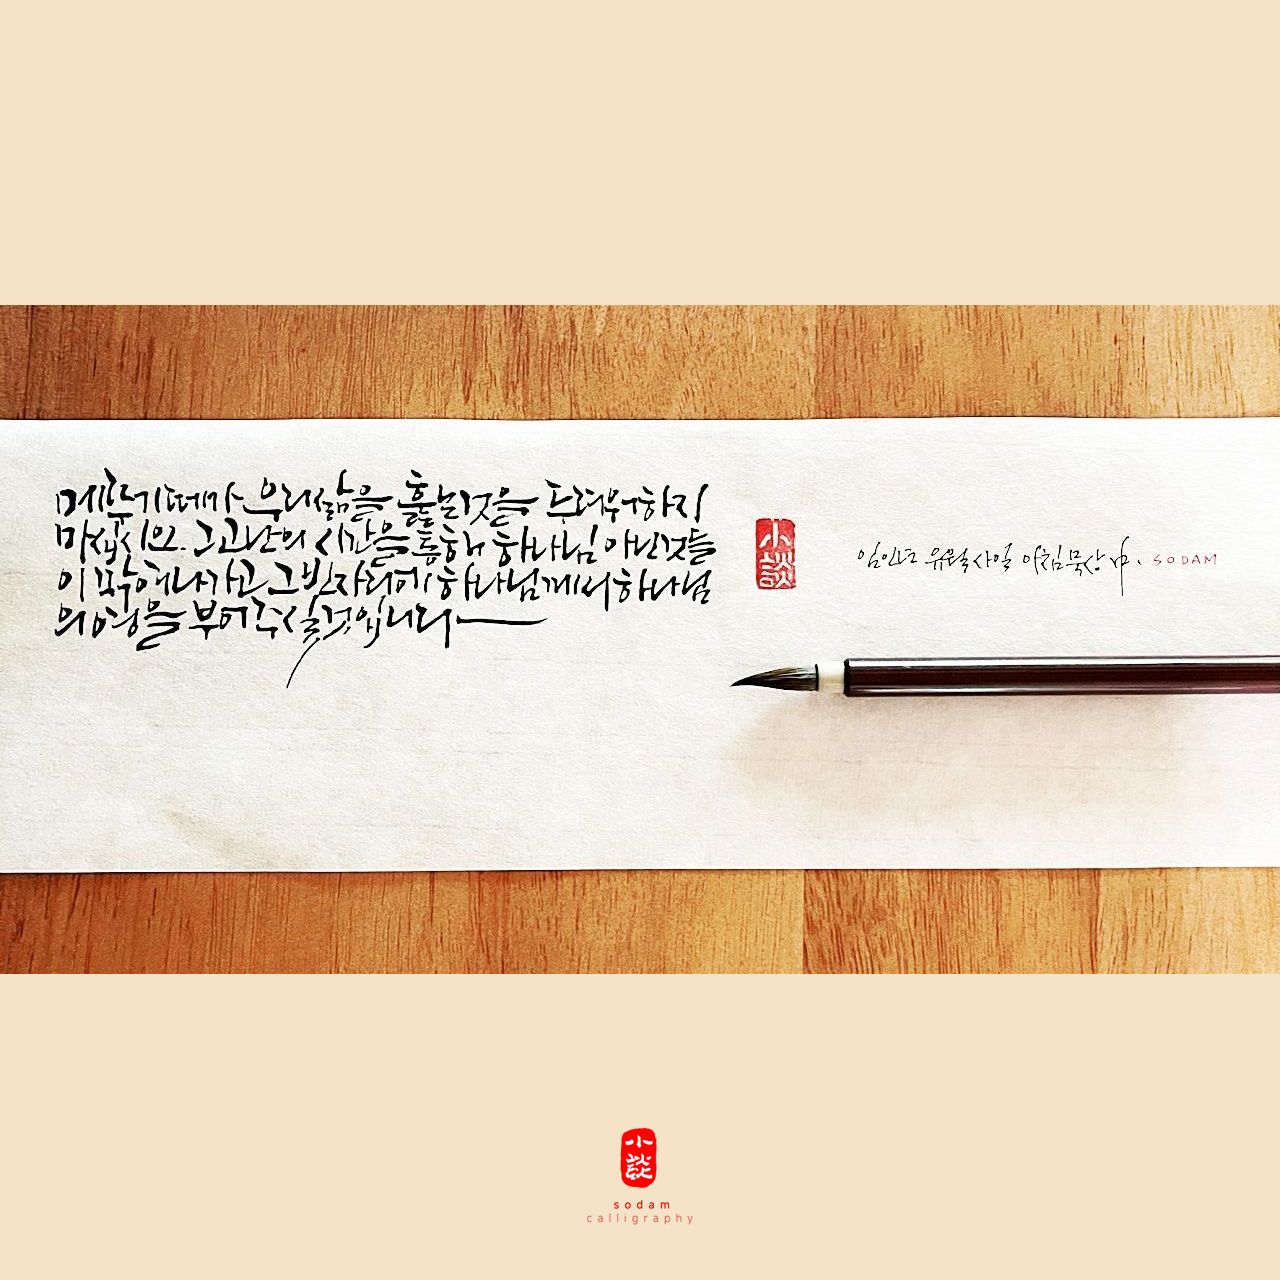 메뚜기떼가 우리삶을 훑는것을 두려워하지
마십시요. 그고난의 시간을통해 하나님 아닌것들
이 빠져나가고 그빈자리에 하나님께서 하나님
의영을 부어주실것입니다
小談
임인년 유월 사일 아침묵상 中. SODAM
小談
sodam
calligraphy